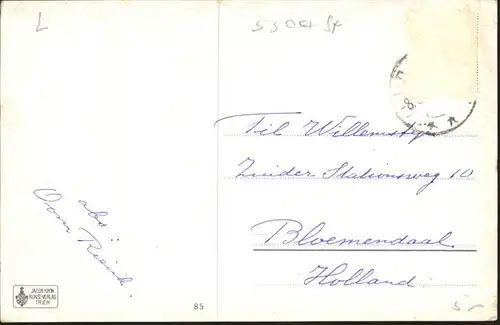 L
Til Willemstijn
Zuider Stationsweg 10
Bloemendaal
Holland.
abs:
Oom Rienk.
JACOB KRON
KUNST-VERLAG
TRIER
85
5-